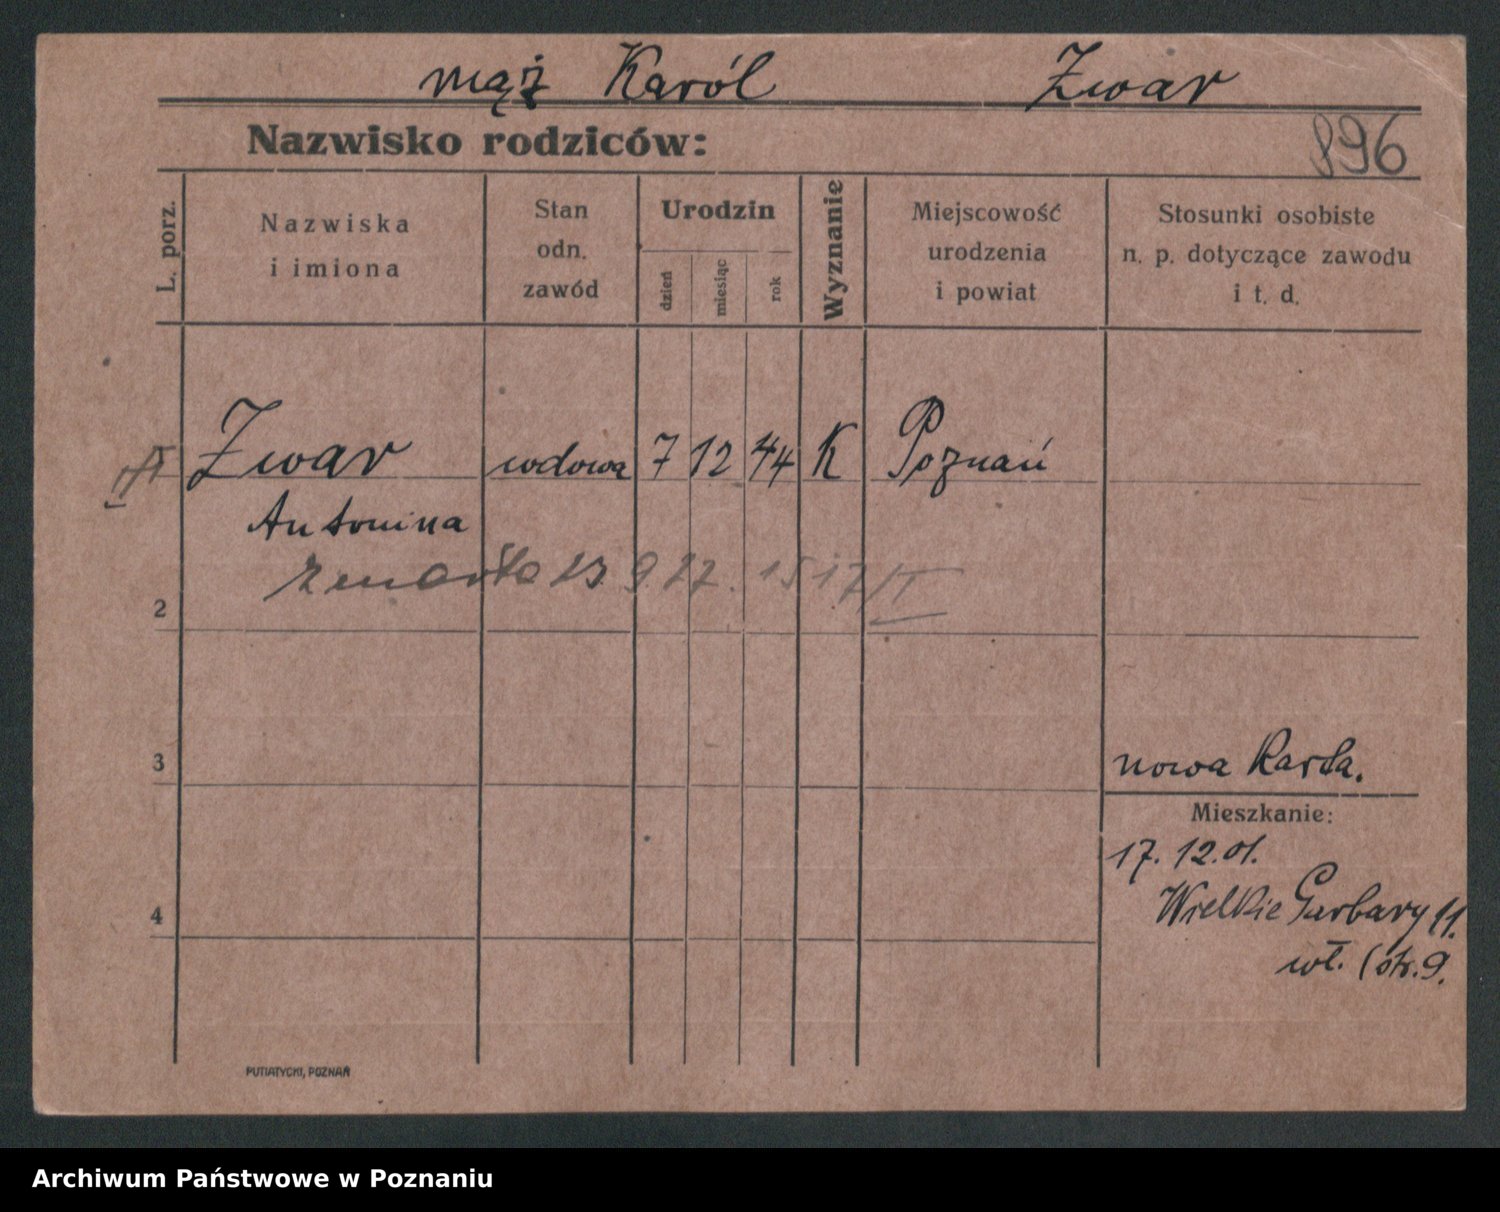 mąż Karól Zwar
Nazwisko rodziców:
896
L. porz.
Nazwiska
i imiona
Stan
odn.
zawód
Urodzin
dzień
miesiąc
rok
Wyznanie
Miejscowość
urodzenia
i powiat
Stosunki osobiste
n. p. dotyczące zawodu
i t. d.
Zwar wdowa 7 12 44 K Poznań
Antonina
zmarła 23. 9. 27. 1517/II
2
3
nowa Karta.
Mieszkanie:
17. 12. 01.
4
Wielkie Garbary 11.
wł. (str. 9.
PUTIATYCKI, POZNAŃ
Archiwum Państwowe w Poznaniu